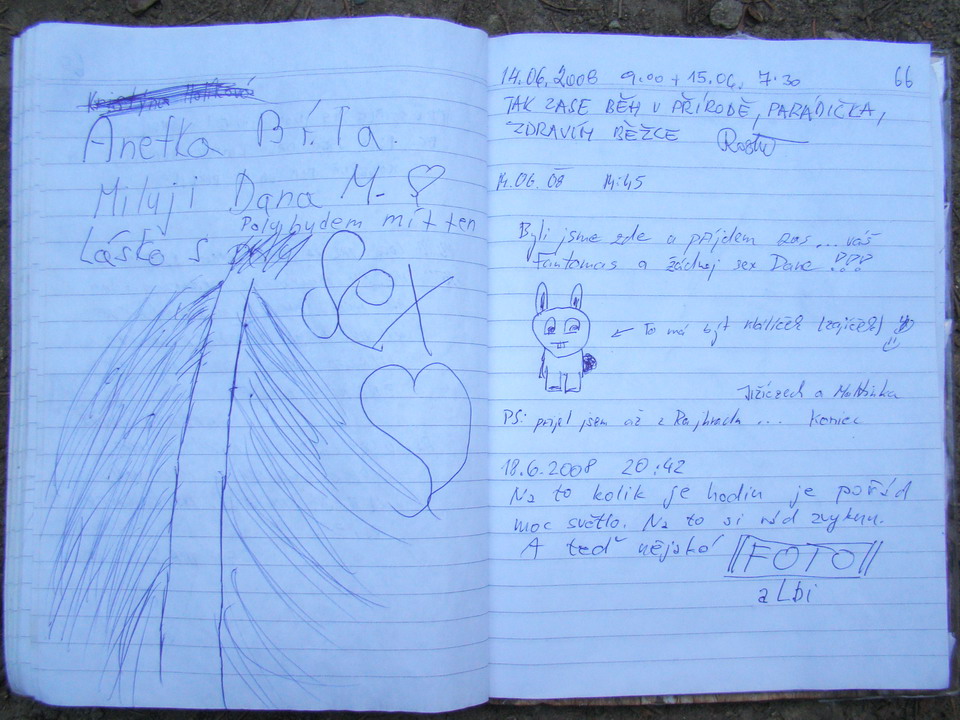 Anetka Bí.la.
Miluji Dana M.
Polybydem mít ten
Lásko s
Sex
66
14.06.2008 9:00 + 15.06. 7:30
TAK ZASE BĚH V PŘÍRODĚ, PARÁDIČKA,
ZDRAVÍM BĚŽCE
14.06.08 14:45
Byli jsme zde a příjdem zas... váš
Fantomas a žádnej sex Dane !!!
← To má být králíček (zajíček)
Jižíczech a
PS: přijel jsem až z Rajhradu ... Koniec
18.6.2008 20:42
Na to kolik je hodin je pořád
moc světlo. Na to si rád zvyknu.
A teď nějaké FOTO
aLbi